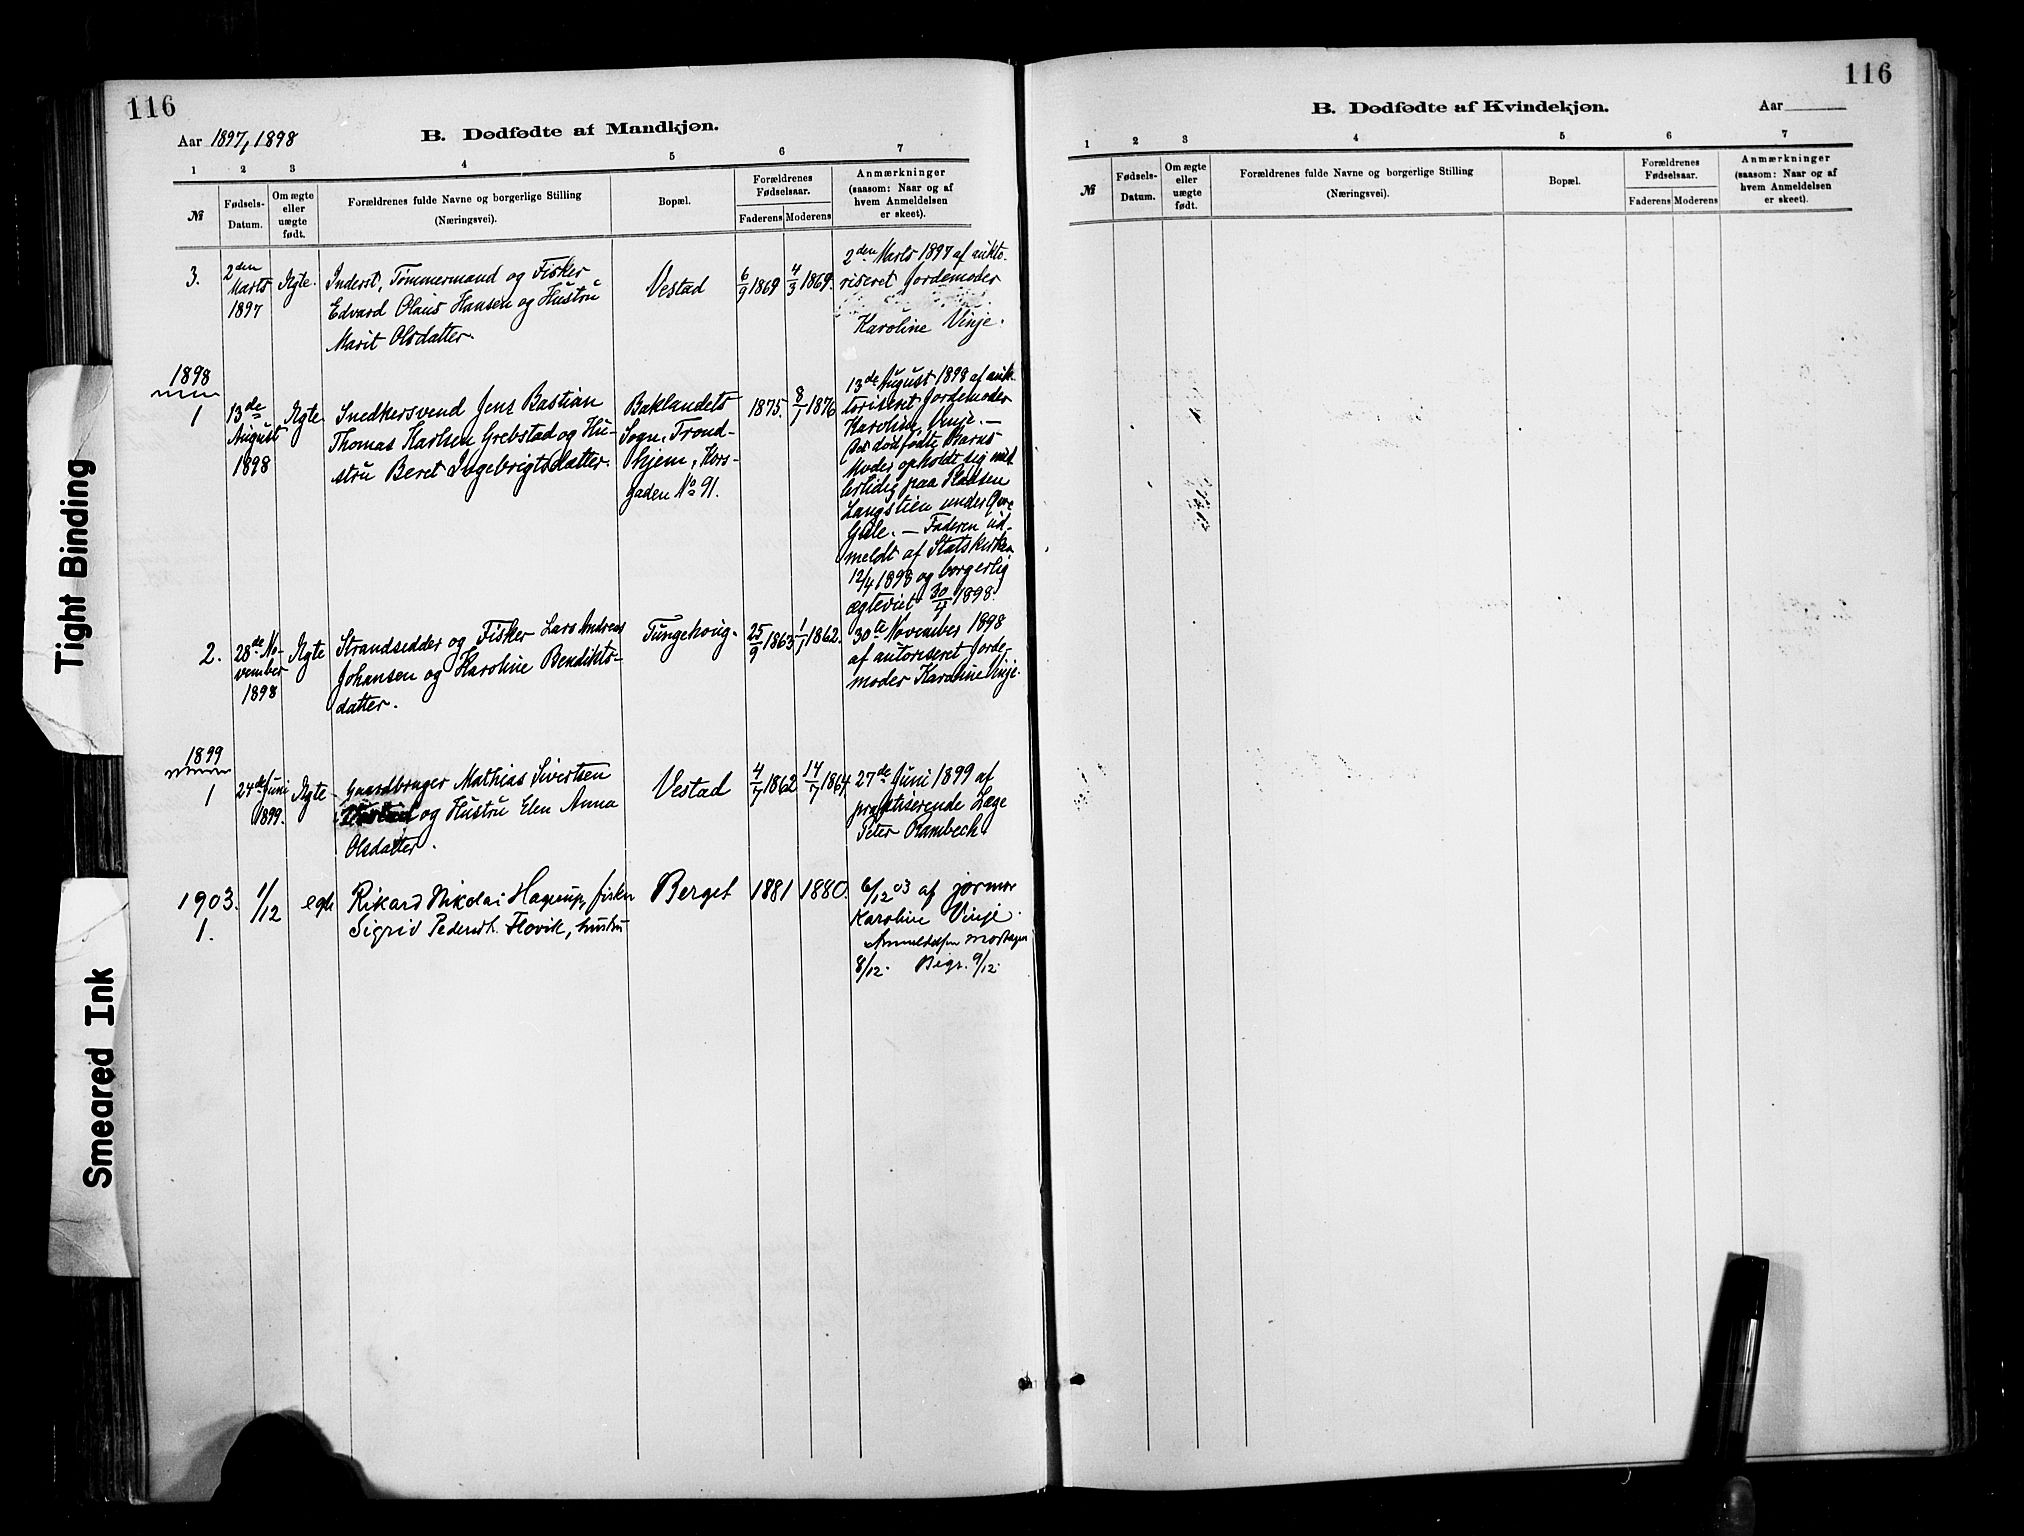 116
Aar 1897, 1898
B. Dødfødte af Mandkjøn.
1 2 3 4 5 6 7
№
Fødsels-
Datum.
Om ægte
eller
uægte
født.
Forældrenes fulde Navne og borgerlige Stilling
(Næringsvei).
Bopæl.
Forældrenes
Fødselsaar.
Faderens Moderens
Anmærkninger
(saasom: Naar og af
hvem Anmeldelsen
er skeet).
3.
2den
Marts
1897
Ægte.
Inderst, Tømmermand og Fisker
Edvard Olaus Hansen og Hustru
Marit Olsdatter.
Vestad
6/9 1869
4/3 1869.
2den Marts 1897 af aukto-
riseret Jordemoder
Karoline Vinje.
1898
1
13de
August
1898
Ægte.
Snedkersvend Jens Bastian
Thomas Karlsen Grebstad og Hu-
stru Beret Ingebrigtsdatter.
Baklandets
Sogn, Trond-
hjem, Kors-
gaden No 91.
1875.
8/1 1876
13de August 1898 af auk-
toriseret Jordemoder
Karoline Vinje. —
Det dødfødte Barns
Moder opholdt sig mid-
lertidig paa Pladsen
Langstien under
Gide. — Faderen ud-
meldt af Statskirken
12/4 1898 og borgerlig
ægteviet 30/4 1898.
2.
28de No-
vember
1898
Ægte
Strandsidder og Fisker Lars Andreas
Johansen og Karoline Bendikts-
datter.
Tungehoug.
25/9 1863
1/1 1862.
30te November 1898
af autoriseret Jorde-
moder Karoline Vinje.
1899
1
24de Juni
1899.
Ægte
Gaardbruger Mathias Sivertsen
og Hustru Elen Anna
Olsdatter.
Vestad
4/7 1862
14/7 1864
27de Juni 1899 af
praktiserende Læge
Peter Rambech
1903.
1.
1/12
egte
Rikard Nikolai Hagerup, fisker
Sigrid Pedersdt. Flovik, hustru
Berget
1881
1880.
6/12 03 af jormor
Karoline Vinje.
Anmeldelsen mottagen
8/12. Begr. 9/12.
116
B. Dødfødte af Kvindekjøn.
Aar
1 2 3 4 5 6 7
№
Fødsels-
Datum.
Om ægte
eller
uægte
født.
Forældrenes fulde Navne og borgerlige Stilling
(Næringsvei).
Bopæl.
Forældrenes
Fødselsaar.
Faderens Moderens
Anmærkninger
(saasom: Naar og af
hvem Anmeldelsen
er skeet).
Tight Binding
Smeared Ink